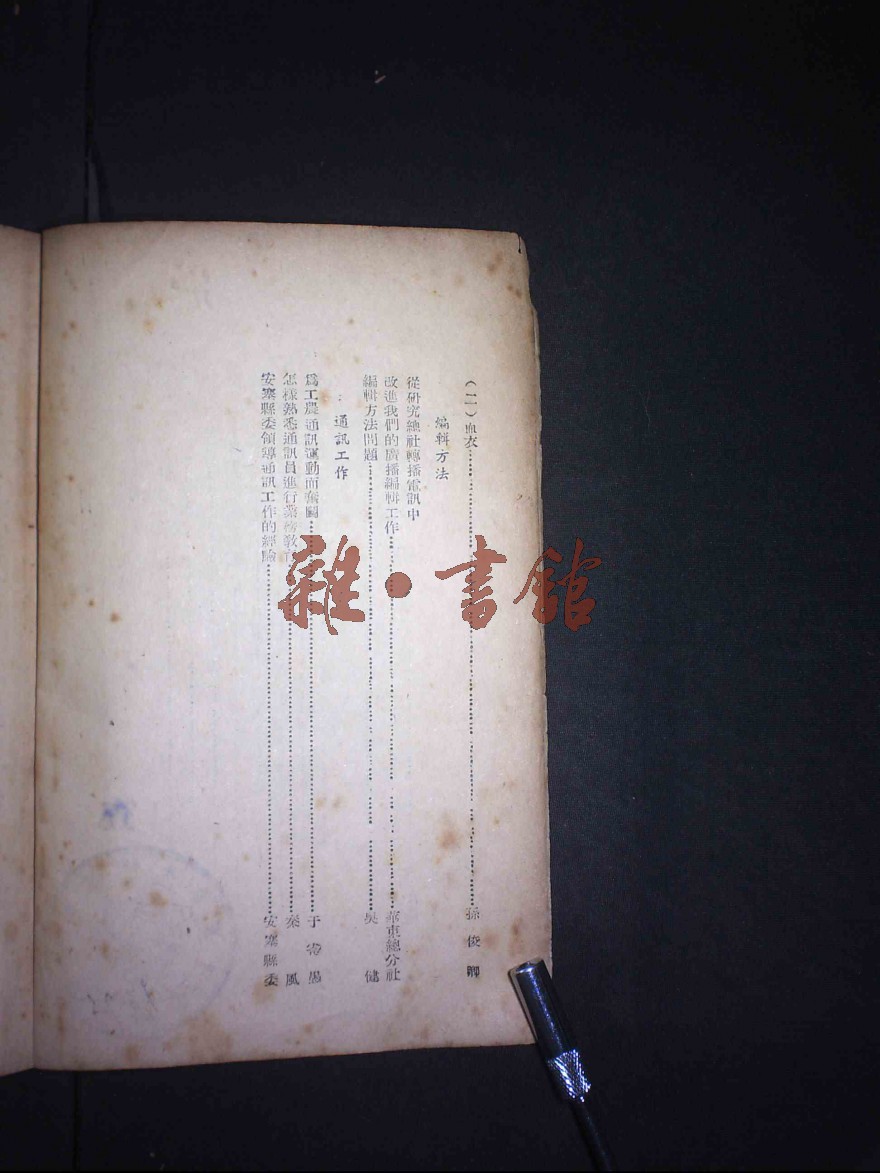 （二）血衣……孫俊卿
編輯方法
從研究總社轉播電訊中
改進我們的廣播編輯工作……華東總分社
編輯方法問題……吳健
通訊工作
為工農通訊運動而奮鬭……于 愚
怎樣熟悉通訊員進行業務教育……秦風
安塞縣委領導通訊工作的經驗……安塞縣委
雜·書館